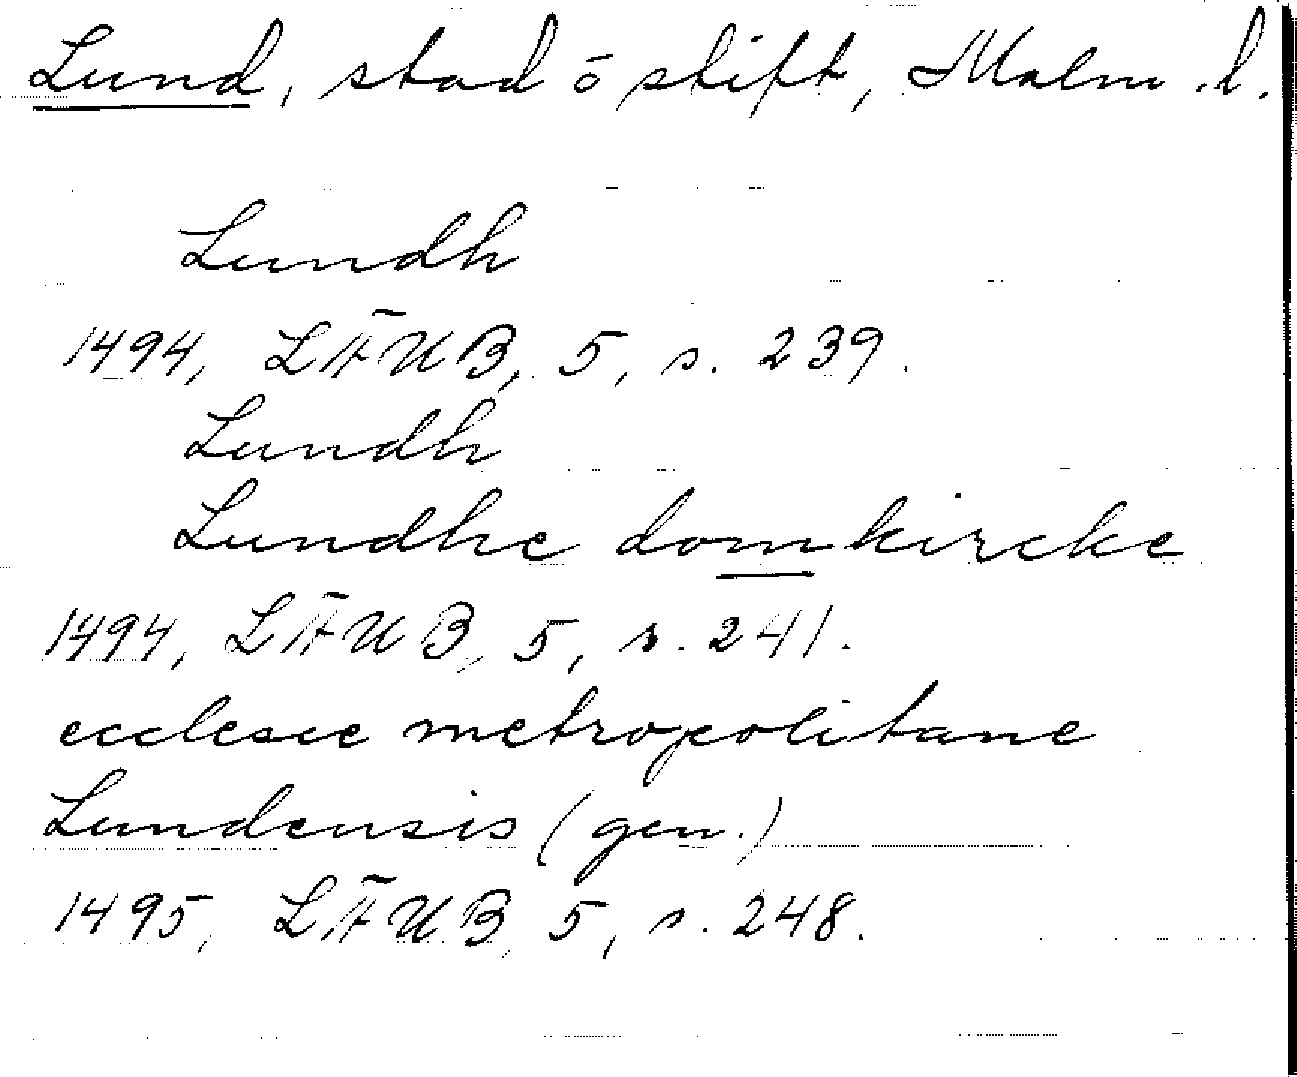 Lund, stad o stift, Malm. l.
Lundh
1494, LÄUB, 5, s. 239.
Lundh
Lundhe domkircke
1494, LÄUB, 5, s. 241.
ecclesie metropolitane
Lundensis (gen.)
1495, LÄUB, 5, s. 248.